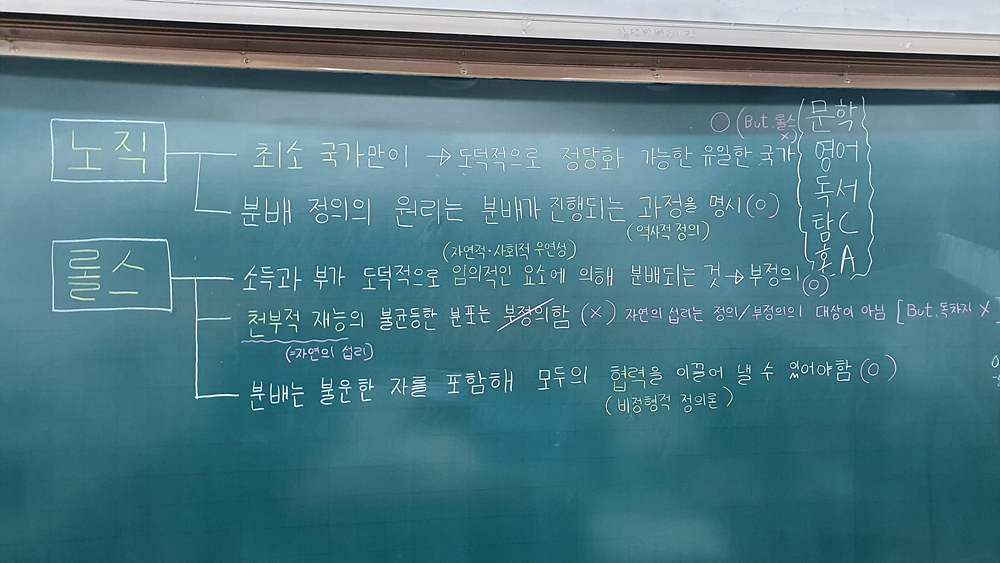 노직
최소 국가만이 → 도덕적으로 정당화 가능한 유일한 국가 ○ (But, 롤스 ×)
분배 정의의 원리는 분배가 진행되는 과정을 명시 (○)
(역사적 정의)
롤스
(자연적·사회적 우연성)
소득과 부가 도덕적으로 임의적인 요소에 의해 분배되는 것 → 부정의 (○)
천부적 재능의 불균등한 분포는 부정의함 (×) 자연의 섭리는 정의/부정의의 대상이 아님 [But, 독차지 ×
(=자연의 섭리)
분배는 불운한 자를 포함해 모두의 협력을 이끌어 낼 수 있어야함 (○)
(비정형적 정의론)
문학
영어
독서
탐C
홈A